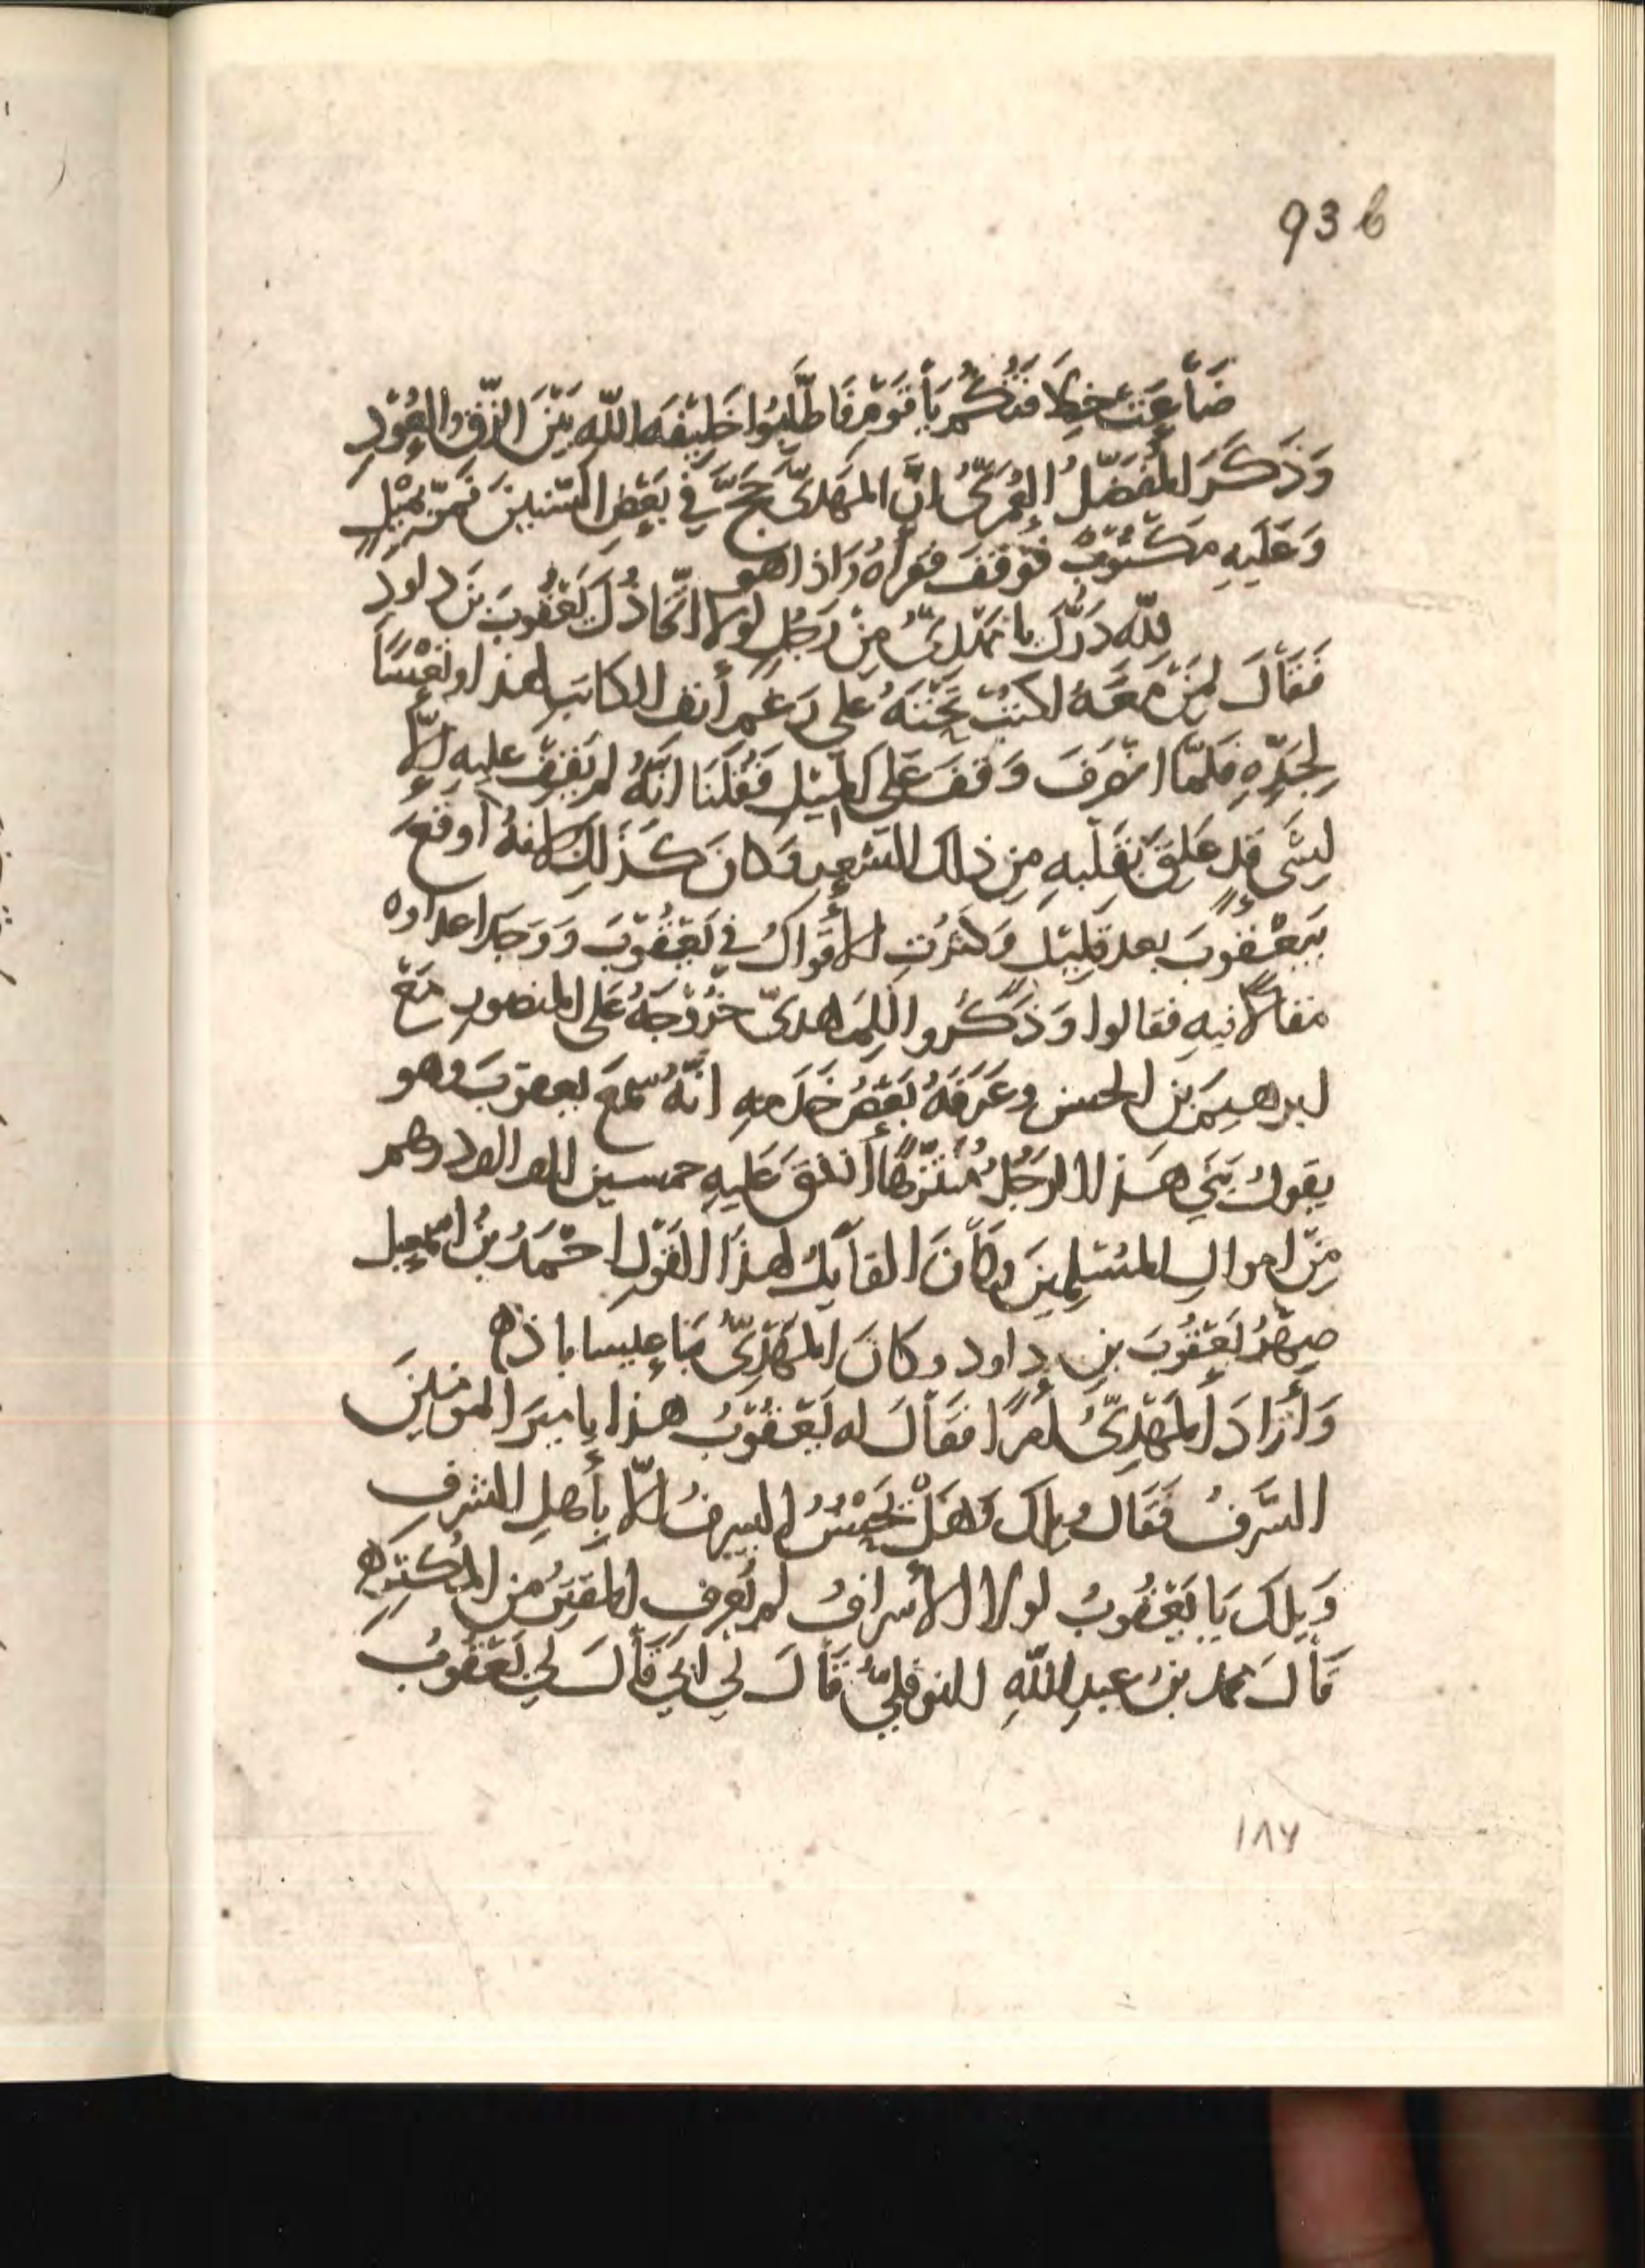 936
ضَاعَتْ خِلَافَتُكُمْ يَا قَوْمِ فَاطْلُبُوا خَلِيفَةَ اللّٰهِ بَيْنَ الزِّقِّ وَالعُوْدِ
وَذَكَرَ المُفَضَّلُ العُمَرِيُّ انَّ المَهْدِيَّ حَجَّ فِي بَعْضِ السِّنِينَ فَمَرَّ بِمِيْلٍ
وَعَلَيهِ مَكْتُوْبٌ فَوَقَفَ فقرأهُ وَاذا هو
لِلّٰهِ دَرُّكَ يا مَهْدِيُّ مِنْ رَجُلٍ لولا اتّخَاذُكَ يَعْقُوبَ بنَ داود
فَقَالَ لِمَنْ مَعَهُ اكتبْ تَحْتَهُ على رَغْمِ أنفِ الكاتبِ لهذا وتَعْسًا
لِجَدِّهِ فلمّا انصَرفَ وَقَفَ عَلى المِيْلِ فَقُلنَا انّهُ لم يَقِفْ عليهِ الّا
لِشَىءٍ قد عَلِقَ بقَلْبهِ مِن ذلك الشعرِ وَكانَ كَذَلِكَ لانهُ أوقعَ
بِيَعْقُوبَ بعد قَلِيْلٍ وَكثرُتِ الأقْوالُ في يَعْقُوْبَ وَوَجَدَ اعداوه
مقالًا فيهِ فقالوا وَذَكَرُوا لِلمَهدىّ خُرُوْجَهُ عَلى المنصورِ مَعَ
ابرهيمَ بنِ الحسنِ وعَرّفَهُ بَعْضُ خَدَمهِ انّهُ سَمعَ يعقوبَ وهو
يقولُ بَنَي هَذا الرجُلُ مُتَنَزَّهًا أَنفقَ عَليهِ خمسين الف الف درهم
مِنْ اموالِ المُسْلِمِينَ وكَانَ القَايلُ لهذا القَوْلِ احْمَدُ بنُ اسمعيل
صِهْرُ يَعْقُوبَ بنِ داود وكانَ المَهْدِيُّ بَنَا عيسا باذه
وَأرَادَ المَهْدِيُّ أمرًا فقَالَ له يَعْقُوبُ هذا يا ميرَ المومنينَ
السَّرَفُ فَقَالَ ويلك وَهَلْ يَحْسُنُ السرفُ الّا بِأهلِ الشرفِ
وَيلكَ يَا يَعْقُوبُ لولا الأسرافُ لم يُعرفِ المقترُ من المُكثرِ
قَالَ محمد بنُ عبدِ اللّٰهِ النوفليُّ قَالَ لي ابي قَالَ لي يَعْقُوبُ
١٨٦